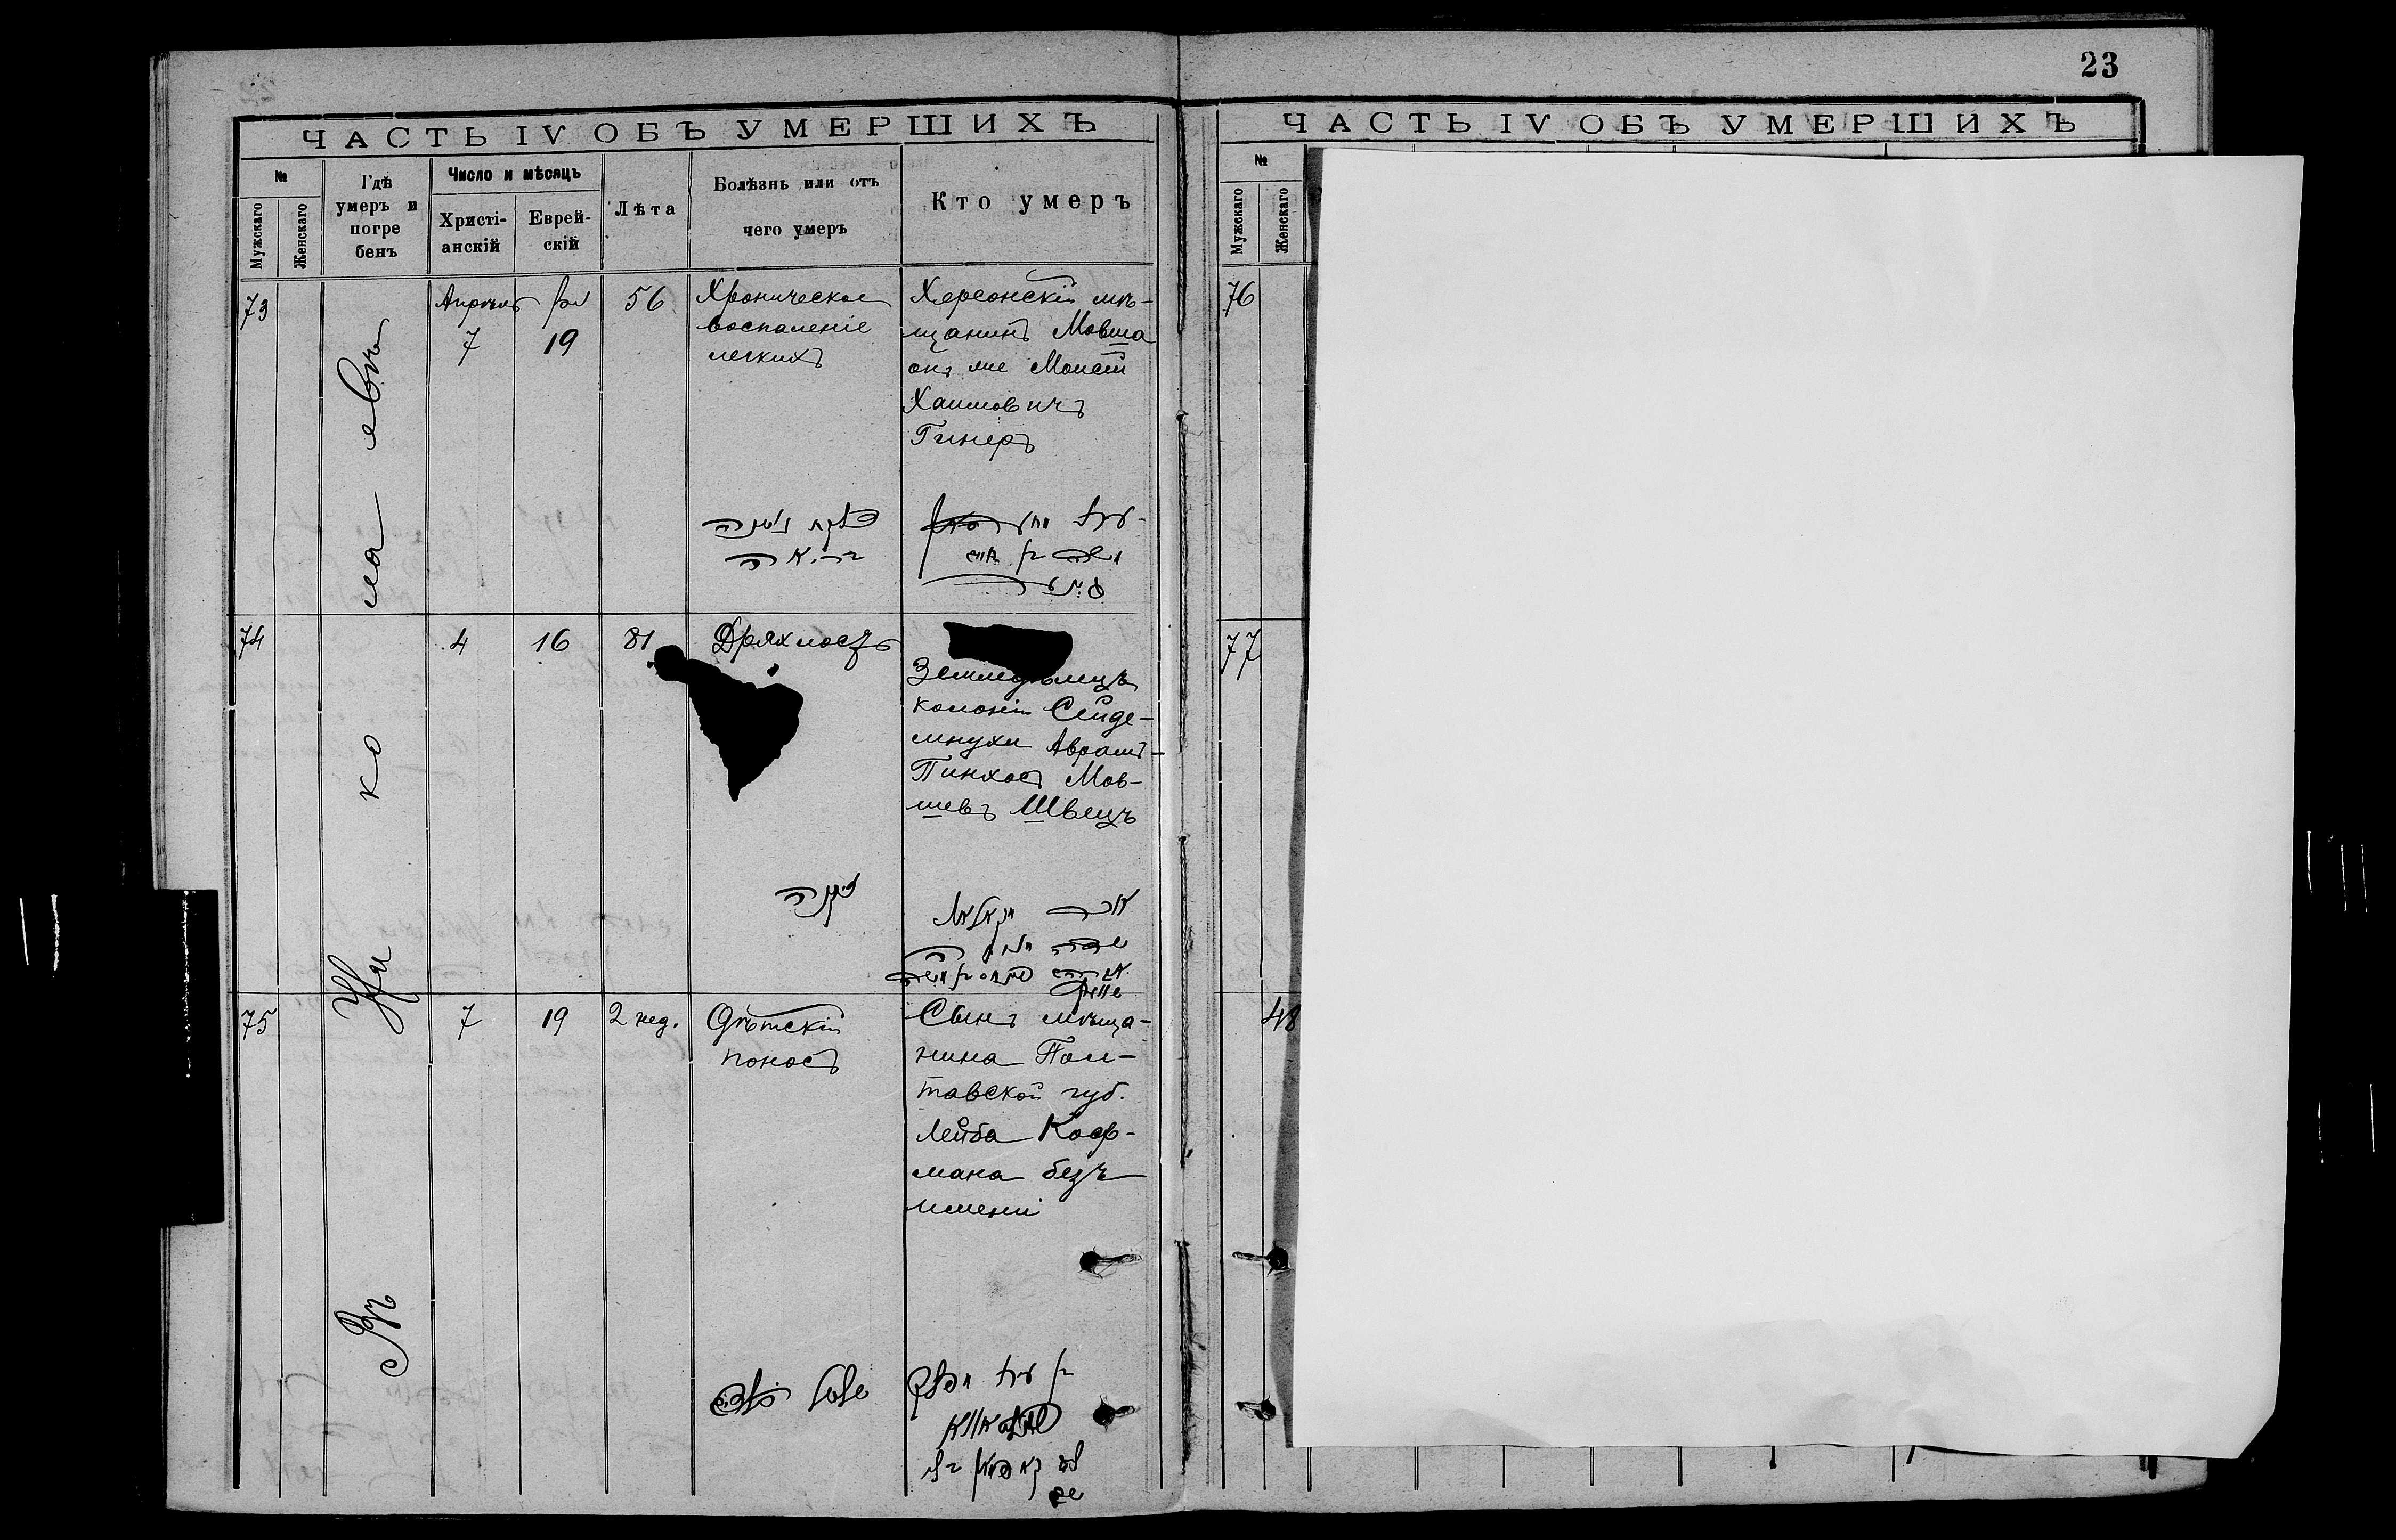 23
ЧАСТЬ IV ОБЪ УМЕРШИХЪ
№
Мужскаго
Женскаго
Гдѣ
умеръ и
погре
бенъ
Число и мѣсяцъ
Христі-
анскій
Еврей-
скій
Лѣта
Болѣзнь или отъ
чего умеръ
Кто умеръ
Въ
Ни
ко
ла
евъ
73
Апрѣль
7
19
56
Хроническое
воспаленіе
легкихъ
Херсонскій мѣ-
щанинъ Мовша
онъ же Моисей
Хаимовичъ
Гинеръ
74
4
16
81
Дряхлость
Земледѣлецъ
колоніи Сейде-
минухи Аврамъ-
Пинхос Мов-
шевъ Швецъ
זקנה
75
7
19
2 нед.
Дѣтскій
поносъ
Сынъ мѣща-
нина Пол-
тавской губ.
Лейба Коф-
мана безъ
имени
ЧАСТЬ IV ОБЪ УМЕРШИХЪ
№
Мужскаго
Женскаго
76
77
48